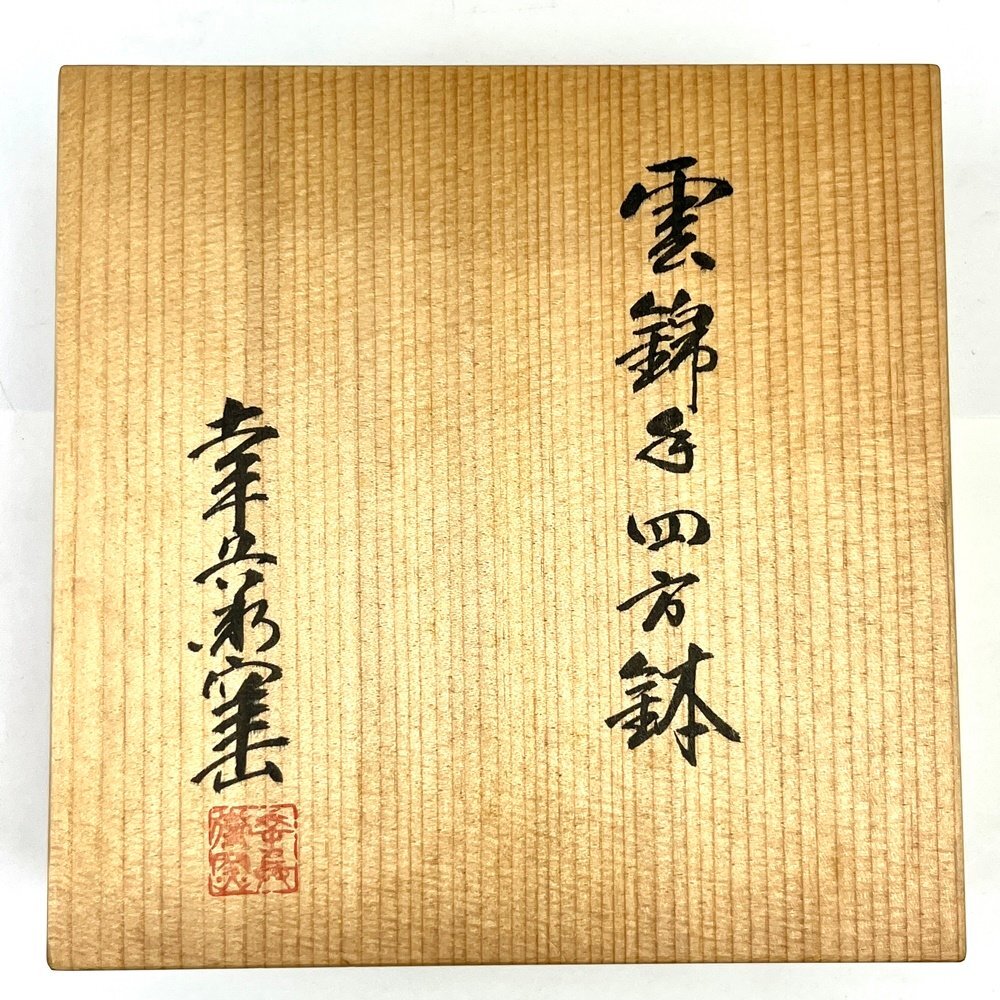 雲錦手四方鉢
幸兵衛窯